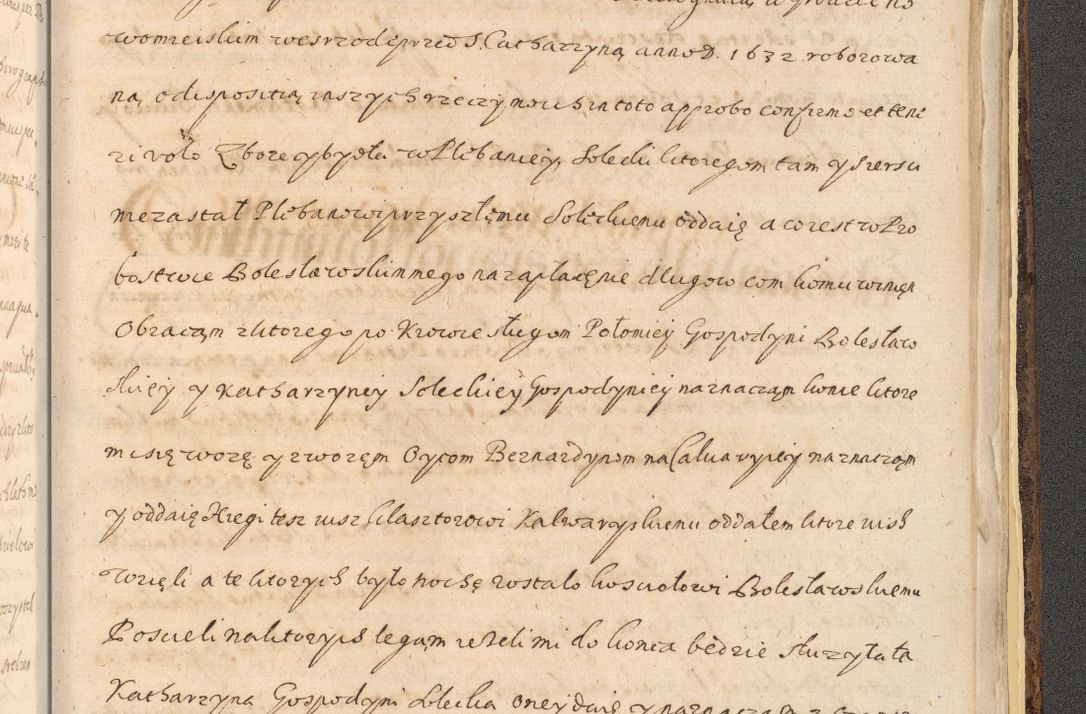 womieiskim we srzode przed S. Catharzyną anno D. 1632 roborowa
ną o dispositią inszych rzeczy moich in toto approbo confirmo et tene
ri volo Zboze y bydła w Plebaniey Soleckiey ktoregom tam y szersu
mezastał Plebanowi przyszłemu Soleckiemu oddaię a co iest w Pro
bostwie Bolesławoskim mego na zapłacęnie długow com komu winięn
Obracąm z ktorego po Krowie sługom Połomiey Gospodyni Bolesław
skiey y Katharzyniey Soleckiey Gospodyniey naznacząm konie ktore
mi się wozę y z wozęm Oycom Bernardynom na Calvaryiey naznacząm
y oddaię Xięgi tesz iusz Klasztorowi Kalwaryskiemu oddałem ktore iush
wzięli a te ktorych było trochę zostało kosciołowi Bolesławoskiemu
Poscieli na ktorych legąm iezeli mi do konca bedzie słuzyłała
Katharzyna Gospodyni Solecka oney daię y naznacząm